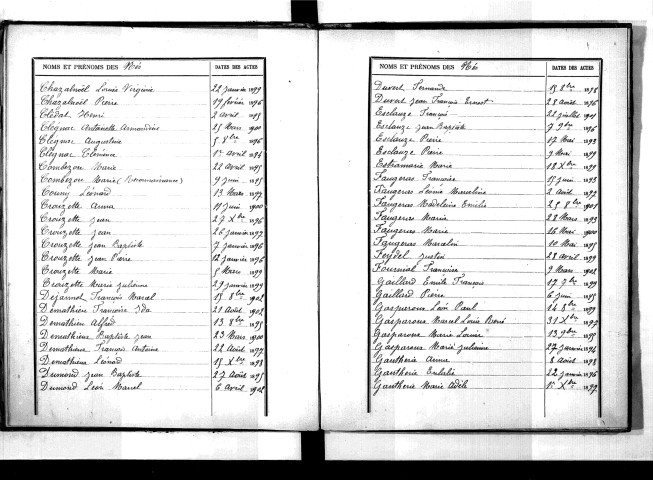 NOMS ET PRÉNOMS DES Nés DATES DES ACTES
Chazalnoël Louise Virginie 22 janvier 1899
Chazalnoël Pierre 19 février 1896
Clédat Henri 2 avril 1895
Clegnac Antoinette Amandine 25 Mars 1900
Clegnac Augustine 5 8bre 1896
Clegnac Clémence 1er avril 1894
Combezou Marie 22 avril 1895
Combezou Marie (Reconnaissance) 9 juin 1895
Couny Léonard 13 Mars 1897
Crouzette Anna 11 juin 1900
Crouzette jean 27 Xbre 1896
Crouzette jean 26 janvier 1899
Crouzette jean Baptiste 7 janvier 1896
Crouzette jean Pierre 12 janvier 1896
Crouzette Marie 5 Mars 1899
Crouzette Marie julienne 29 janvier 1899
Dejammet François Marcel 15 8bre 1902
Demathieu Françoise Ida 21 Août 1902
Demathieu Alfred 13 8bre 1895
Demathieu Baptiste jean 23 Mars 1900
Demathieu François Antoine 22 Août 1897
Demathieu Léonard 15 Xbre 1898
Dumond jean Baptiste 27 Août 1895
Dumond Léon Marcel 6 Avril 1902
NOMS ET PRÉNOMS DES Nés DATES DES ACTES
Duvert Fernande 15 8bre 1898
Duvert jean François Ernest 28 Août 1896
Esclauze François 22 juillet 1901
Esclauze jean Baptiste 7 9bre 1896
Esclauze Pierre 17 Mai 1893
Esclauze Pierre 9 Mai 1899
Estrammarie Marie 18 Xbre 1899
Faugeras Françoise 15 juin 1893
Faugeras Léonie Marceline 2 Avril 1897
Faugeras Madeleine Emilie 25 8bre 1901
Faugeras Maria 28 Mars 1893
Faugeras Marie 26 Mai 1900
Faugeras Marcelin 10 Mai 1895
Feydel justin 28 avril 1899
Fournial Françoise 9 Mars 1902
Gaillard Emile François 17 7bre 1899
Gaillard Pierre 6 juin 1895
Gasparoux Léon Paul 24 8bre 1899
Gasparoux Marcel Louis René 31 Xbre 1897
Gasparoux Marie Louise 13 9bre 1895
Gasparoux Marie julienne 27 janvier 1894
Gautherie Anna 8 Août 1898
Gautherie Eulalie 22 janvier 1896
Gautherie Marie Adèle 1er Xbre 1897